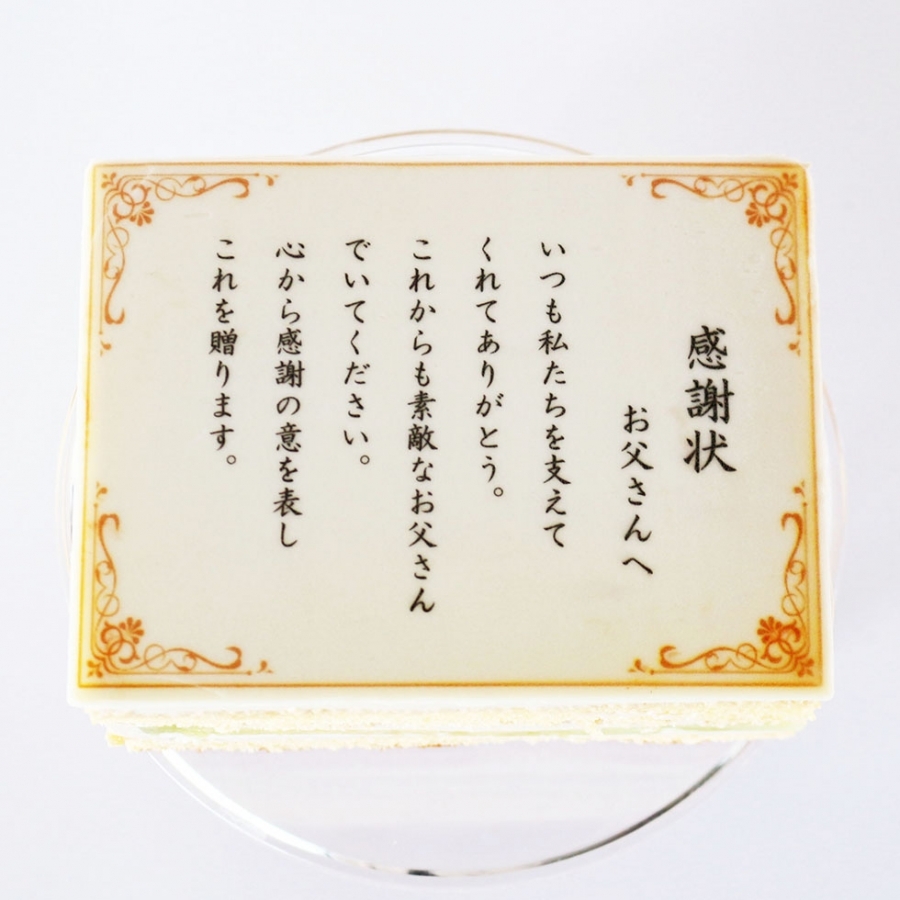 感謝状
お父さんへ
いつも私たちを支えて
くれてありがとう。
これからも素敵なお父さん
でいてください。
心から感謝の意を表し
これを贈ります。